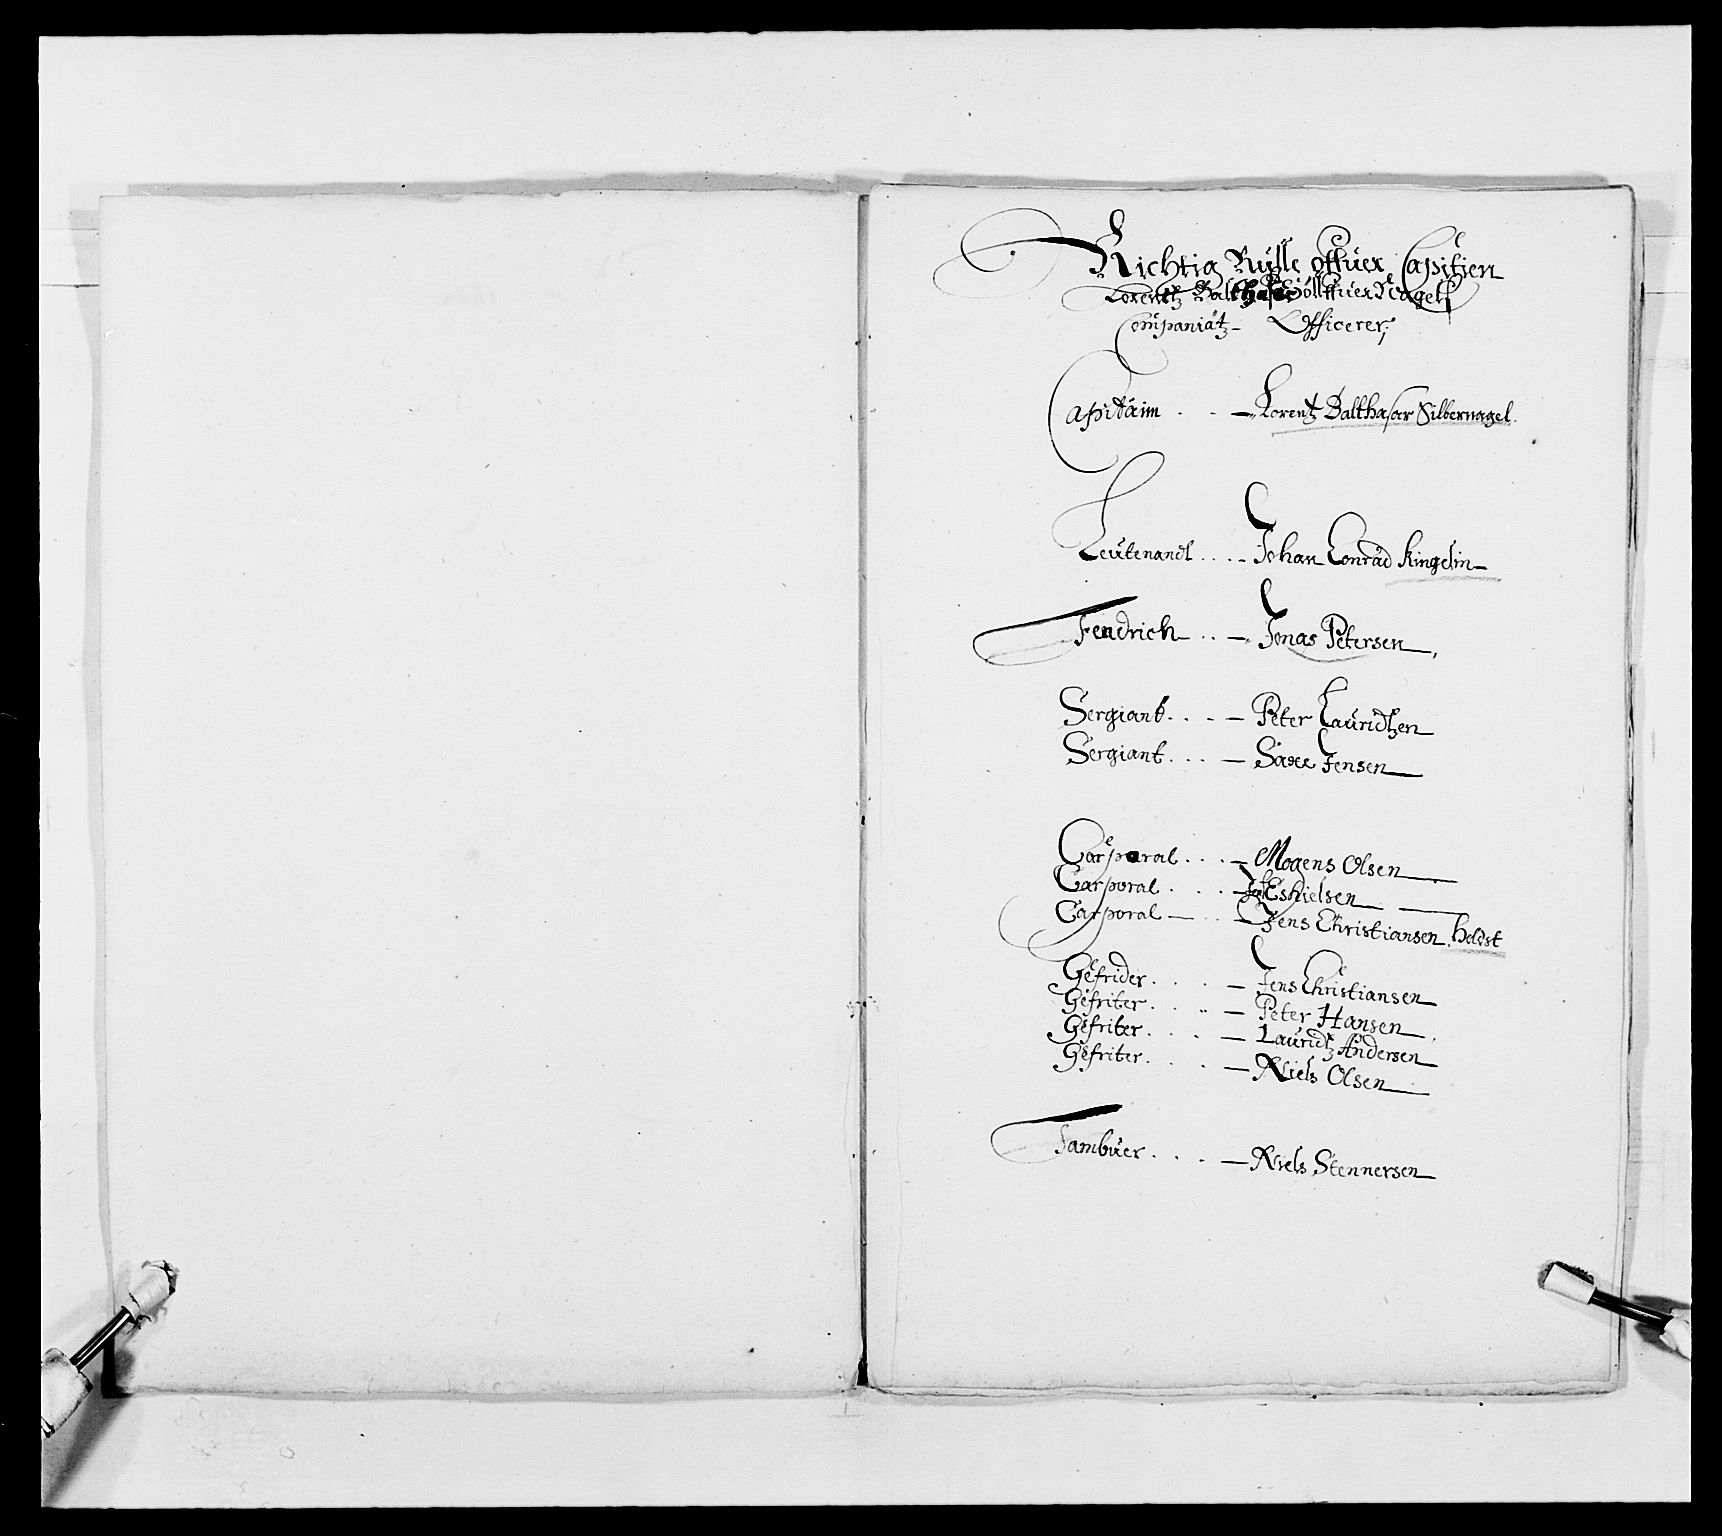 Richtig Rulle offuer Capitien
Lorentz Balthasar Söllffuer Nagelss
Companiatz Officerer,
Capitaim . . — Lorentz Balthasar Silbernagel.
Leutenandt . . . . Johan Conrad Ringelin
Fendrich . . — Jonas Petersen
Sergiant . . . — Peter Lauridtzen
Sergiant . . . — Saxe Jensen
Corporal . . . — Mogens Olsen
Corporal . . . — Eskielsen
Corporal — . . — Jens Christiansen Holdst
Gefrider . . . . — Jens Christiansen
Gefriter . . . — Peter Hansen
Gefriter . . . — Lauridtz Andersen
Gefriter . . . — Niels Olsen
Tambuer . . . — Niels Stennersen